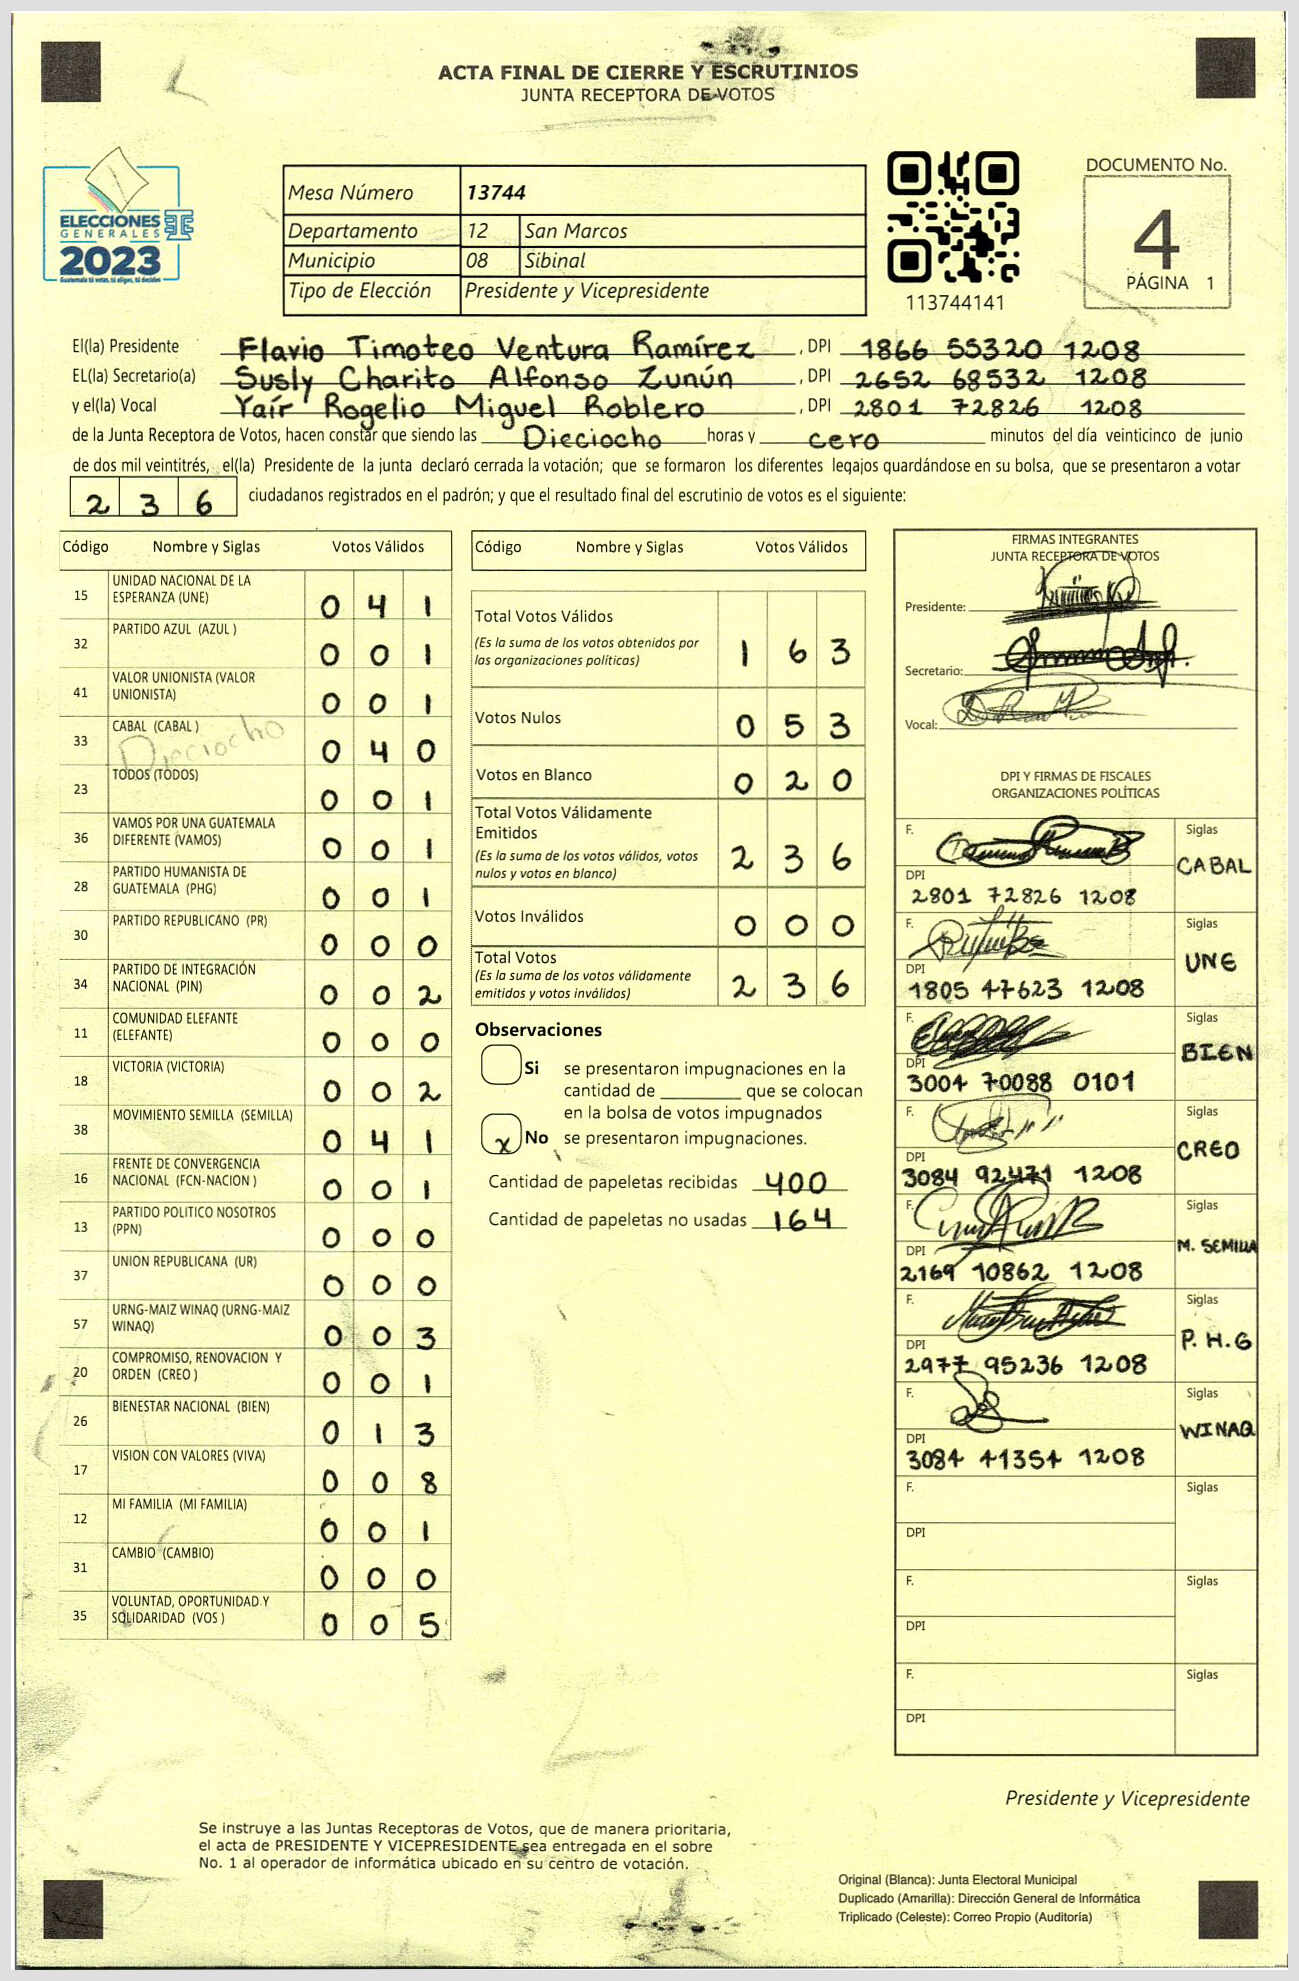 ACTA FINAL DE CIERRE Y ESCRUTINIOS
JUNTA RECEPTORA DE VOTOS
ELECCIONES
GENERALES
2023
Guatemala tú votas, tú eliges, tú decides
Mesa Número 13744
Departamento 12 San Marcos
Municipio 08 Sibinal
Tipo de Elección Presidente y Vicepresidente
113744141
DOCUMENTO No.
4
PÁGINA 1
El(la) Presidente Flavio Timoteo Ventura Ramírez, DPI 1866 55320 1208
EL(la) Secretario(a) Susly Charito Alfonso Zunún, DPI 2652 68532 1208
y el(la) Vocal Yaír Rogelio Miguel Roblero, DPI 2801 72826 1208
de la Junta Receptora de Votos, hacen constar que siendo las Dieciocho horas y cero minutos del día veinticinco de junio
de dos mil veintitrés, el(la) Presidente de la junta declaró cerrada la votación; que se formaron los diferentes legajos quardándose en su bolsa, que se presentaron a votar
236 ciudadanos registrados en el padrón; y que el resultado final del escrutinio de votos es el siguiente:
Código Nombre y Siglas Votos Válidos
15 UNIDAD NACIONAL DE LA ESPERANZA (UNE) 041
32 PARTIDO AZUL (AZUL ) 001
41 VALOR UNIONISTA (VALOR UNIONISTA) 001
33 CABAL (CABAL ) 040
Dieciocho
23 TODOS (TODOS) 001
36 VAMOS POR UNA GUATEMALA DIFERENTE (VAMOS) 001
28 PARTIDO HUMANISTA DE GUATEMALA (PHG) 001
30 PARTIDO REPUBLICANO (PR) 000
34 PARTIDO DE INTEGRACIÓN NACIONAL (PIN) 002
11 COMUNIDAD ELEFANTE (ELEFANTE) 000
18 VICTORIA (VICTORIA) 002
38 MOVIMIENTO SEMILLA (SEMILLA) 041
16 FRENTE DE CONVERGENCIA NACIONAL (FCN-NACION ) 001
13 PARTIDO POLITICO NOSOTROS (PPN) 000
37 UNION REPUBLICANA (UR) 000
57 URNG-MAIZ WINAQ (URNG-MAIZ WINAQ) 003
20 COMPROMISO, RENOVACION Y ORDEN (CREO ) 001
26 BIENESTAR NACIONAL (BIEN) 013
17 VISION CON VALORES (VIVA) 008
12 MI FAMILIA (MI FAMILIA) 001
31 CAMBIO (CAMBIO) 000
35 VOLUNTAD, OPORTUNIDAD Y SOLIDARIDAD (VOS ) 005
Código Nombre y Siglas Votos Válidos
Total Votos Válidos 163
(Es la suma de los votos obtenidos por
las organizaciones políticas)
Votos Nulos 053
Votos en Blanco 020
Total Votos Válidamente
Emitidos 236
(Es la suma de los votos válidos, votos
nulos y votos en blanco)
Votos Inválidos 000
Total Votos 236
(Es la suma de los votos válidamente
emitidos y votos inválidos)
Observaciones
Si se presentaron impugnaciones en la
cantidad de ________ que se colocan
en la bolsa de votos impugnados
x No se presentaron impugnaciones.
Cantidad de papeletas recibidas 400
Cantidad de papeletas no usadas 164
FIRMAS INTEGRANTES
JUNTA RECEPTORA DE VOTOS
Presidente:
Secretario:
Vocal:
DPI Y FIRMAS DE FISCALES
ORGANIZACIONES POLÍTICAS
F. Siglas CABAL
DPI 2801 72826 1208
F. Siglas UNE
DPI 1805 47623 1208
F. Siglas BIEN
DPI 3004 70088 0101
F. Siglas CREO
DPI 3084 92471 1208
F. Siglas M. SEMILLA
DPI 2169 10862 1208
F. Siglas P. H. G
DPI 2977 95236 1208
F. Siglas WINAQ
DPI 3084 41354 1208
F. Siglas
DPI
F. Siglas
DPI
F. Siglas
DPI
Presidente y Vicepresidente
Se instruye a las Juntas Receptoras de Votos, que de manera prioritaria,
el acta de PRESIDENTE Y VICEPRESIDENTE sea entregada en el sobre
No. 1 al operador de informática ubicado en su centro de votación.
Original (Blanca): Junta Electoral Municipal
Duplicado (Amarilla): Dirección General de Informática
Triplicado (Celeste): Correo Propio (Auditoría)